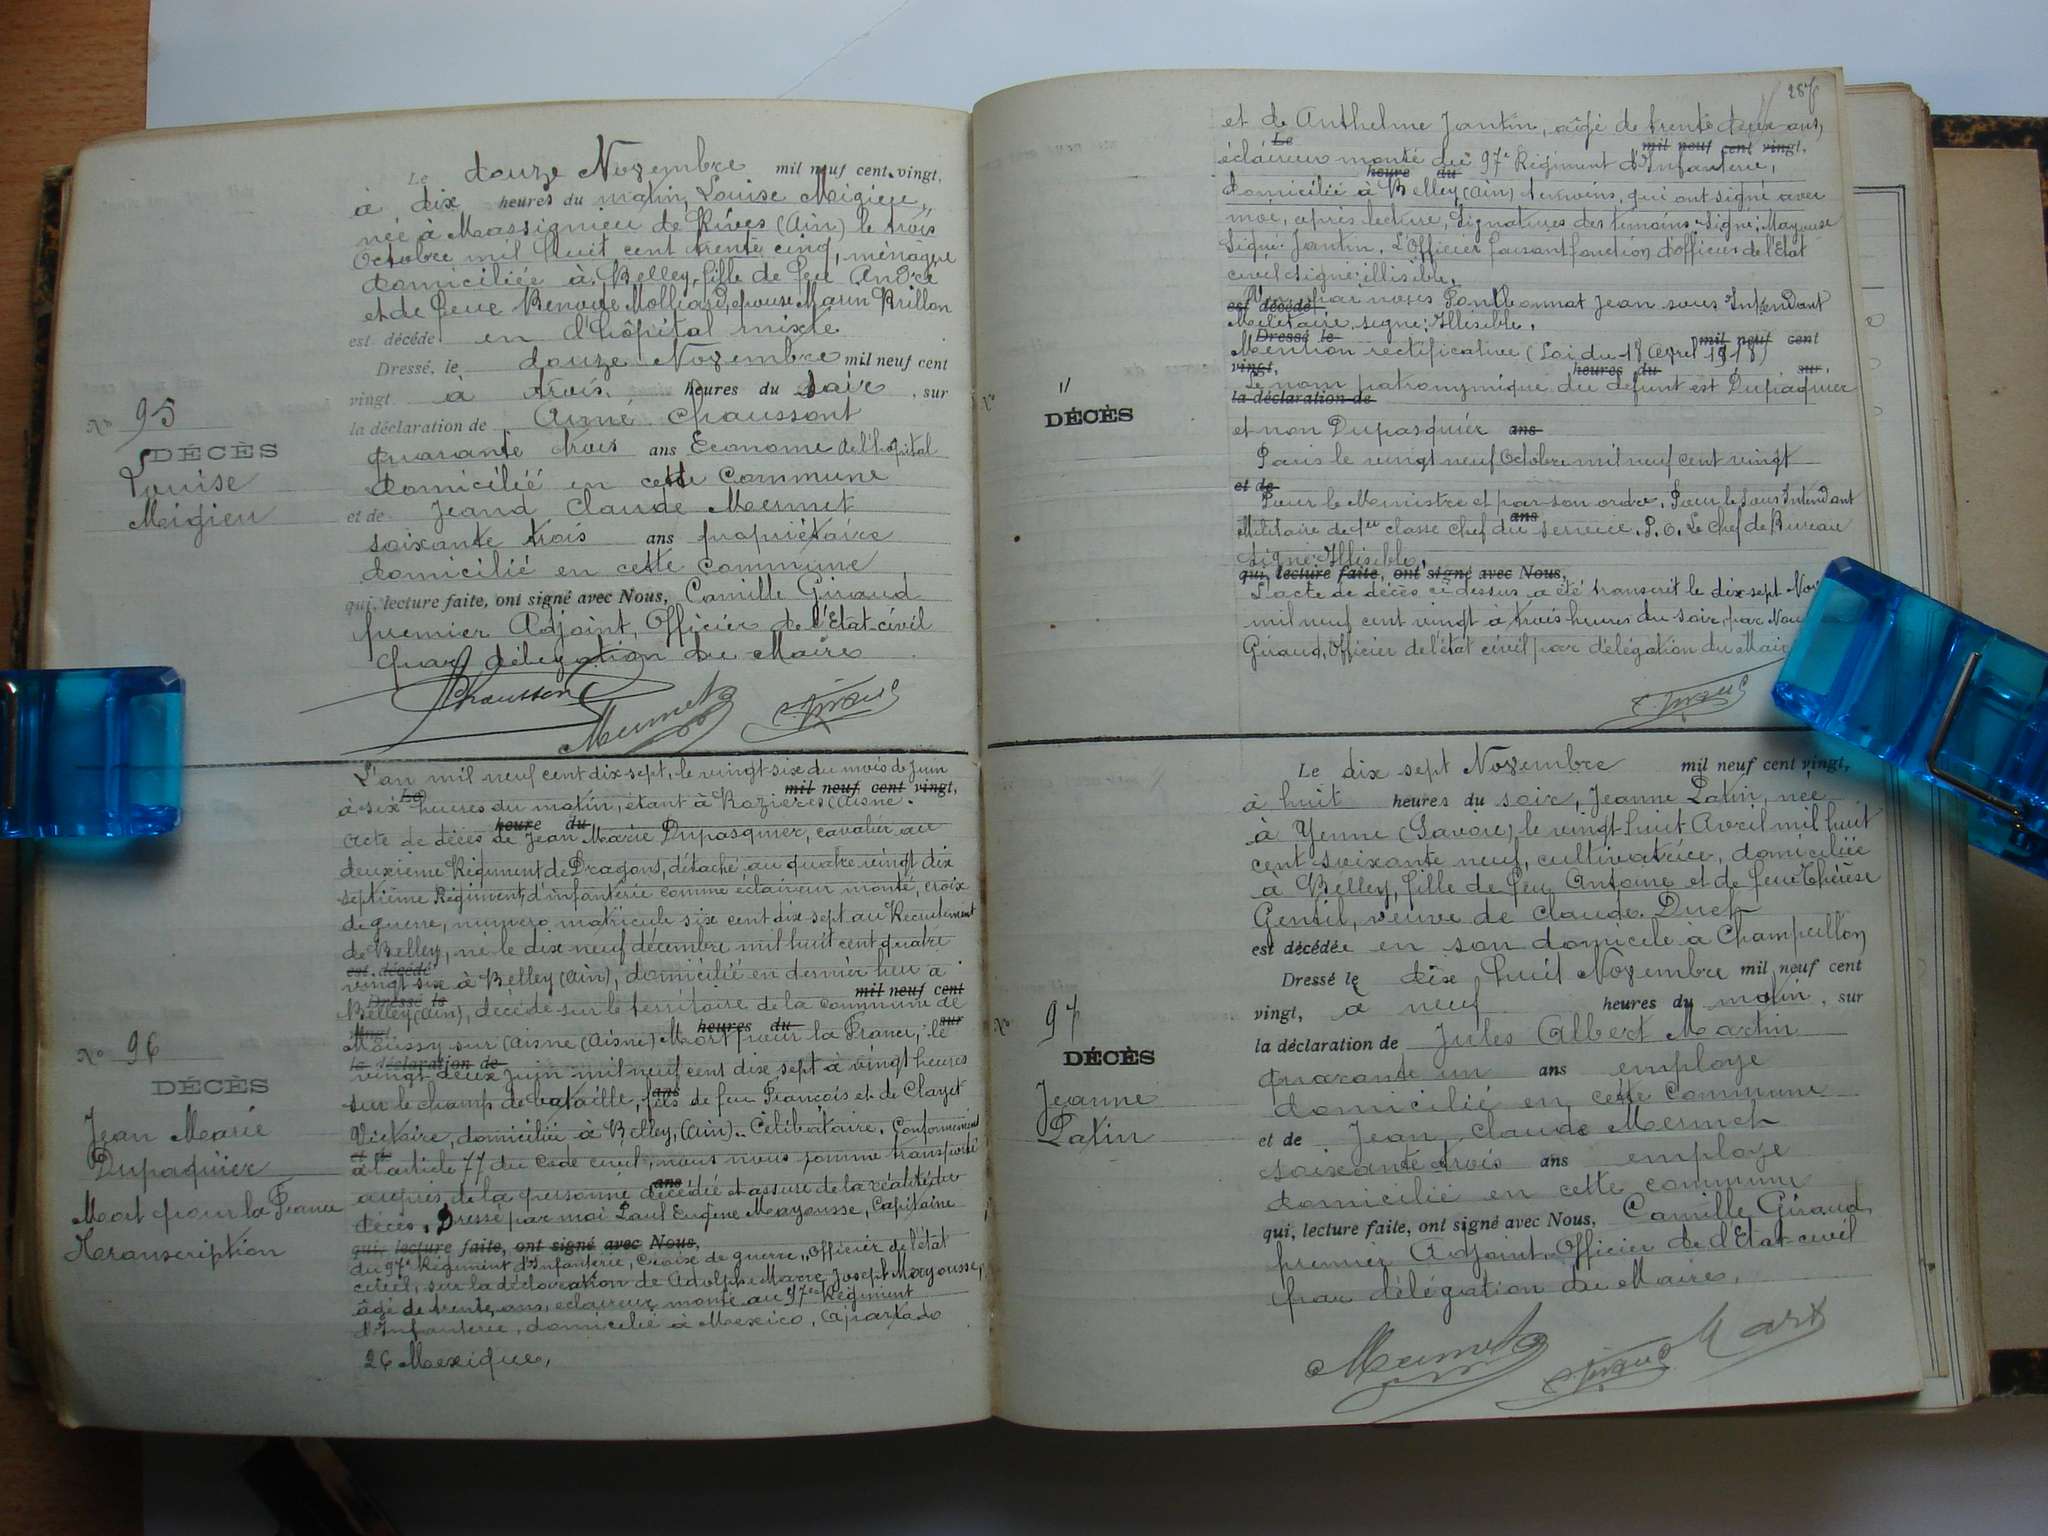 N° 95
DÉCÈS
Louise
Meigieu
Le douze Novembre mil neuf cent vingt,
à dix heures du matin, Louise Meigieu,
née à Massignieu de Rives (Ain) le trois
Octobre mil huit cent trente cinq, ménagère
domiciliée à Belley, fille de feu André
et de feue Benoite Molliard, épouse Marin Brillon
est décédé en l'hôpital mixte
Dressé, le douze Novembre mil neuf cent
vingt à trois heures du soir, sur
la déclaration de Aimé Chaussont
quarante trois ans Econome de l'hopital
domiciliéé en cette Commune
et de Jeand Claude Mermet
soixante trois ans propriétaire
domicilié en cette commune
qui, lecture faite, ont signé avec Nous, Camille Giraud
premier Adjoint, Officier de l'Etat-civil
par délégation du Maire
Chaussont Mermet Giraud
N° 96
DÉCÈS
Jean Marie
Dupaquier
Mort pour la France
Transcription
L'an mil neuf cent dix-sept, le vingt-six du mois de juin
Le mil neuf cent vingt,
à six heures du matin, étant à Rozières (Aisne).
heure du
Acte de décès de Jean Marie Dupasquier, cavalier au
deuxième Régiment de Dragons, détaché au quatre vingt dix
septième Régiment d'infanterie comme éclaireur monté, croix
de guerre, numéro matricule six cent dix-sept au Recrutement
de Belley, né le dix neuf décembre mil huit cent quatre
est décédé
vingt six à Belley (Ain), domicilié en dernier lieu à
Dressé le mil neuf cent
Belley (Ain), décédé sur le territoire de la commune de
vingt, heures du sur
Moussy sur (Aisne (Aisne) Mort pour la France, le
la déclaration de
vingt-deux juin mil neuf cent dix sept à vingt heures
ans
sur le champ de bataille, fils de feu François et de Clayet
Victoire, domiciliée à Belley, (Ain). Célibataire. Conformément
et de
à l'article 77 du code civil, nous nous somme transporté
ans
auprès de la personne décédée et assuré de la réalité du
décès. Dressé par moi Paul Eugène Mayousse, Capitaine
qui, lecture faite, ont signé avec Nous,
du 97e Régiment d'Infanterie, Croix de guerre, Officier de l'état
civil, sur la déclaration de Adolphe Marie Joseph Mayousse,
âgé de trente ans, éclaireur monté au 97e Régiment
d'Infanterie, domicilié à Mexico, Apartado
26 Mexique,
287
N° 11
DÉCÈS
et de Anthelme Jantin, âgé de trente deux ans,
Le mil neuf cent vingt,
éclaireur monté du 97e Régiment d'Infanterie,
heure du
domicilié à Belley (Ain) témoins, qui ont signé avec
moi, après lecture, Signatures des témoins Signé: Mayousse
Signé: Jantin. L'Officier faisant fonction d'officier de l'Etat
civil signé: illisible.
Vu par nous Pontbonnat Jean sous Intendant
est décédé
Militaire signé: Illisible.
Dressé le mil neuf cent
Mention rectificative (Loi du 18 Avril 1918)
vingt, heures du sur,
Le nom patronymique du défunt est Dupaquier
la déclaration de
et non Dupasquier ans
Paris le vingt neuf Octobre mil neuf cent vingt
et de
Pour le Ministre et par son ordre. Pour le Sous Intendant
ans
Militaire de 1ere classe Chef du Service. P.O. Le Chef de Bureau
Signé: Illisible.
qui, lecture faite, ont signé avec Nous,
L'acte de décès ci dessus a été transcrit le dix-sept Nov
mil neuf cent vingt à trois heures du soir, par Nou
Giraud, Officier de l'état civil par délégation du Mair
Giraud
N° 97
DÉCÈS
Jeanne
Latin
Le dix sept Novembre mil neuf cent vingt,
à huit heures du soir, Jeanne Latin, née
à Yenne (Savoie) le vingt huit Avril mil huit
cent soixante neuf, cultivatrice, domiciliée
à Belley, fille de feu Antoine et de feue Thérèse
Gentil, veuve de Claude Duch
est décédée en son domicile à Champeillon
Dressé le dix huit Novembre mil neuf cent
vingt, à neuf heures du matin, sur
la déclaration de Jules Albert Martin
quarante un ans employe
domicilié en cette commune
et de Jean Claude Mermet
soixante trois ans employe
domicilié en cette commune
qui, lecture faite, ont signé avec Nous, Camille Giraud,
premier Adjoint, Officier de l'Etat-civil
par délégation du Maire,
Mermet Giraud Mart